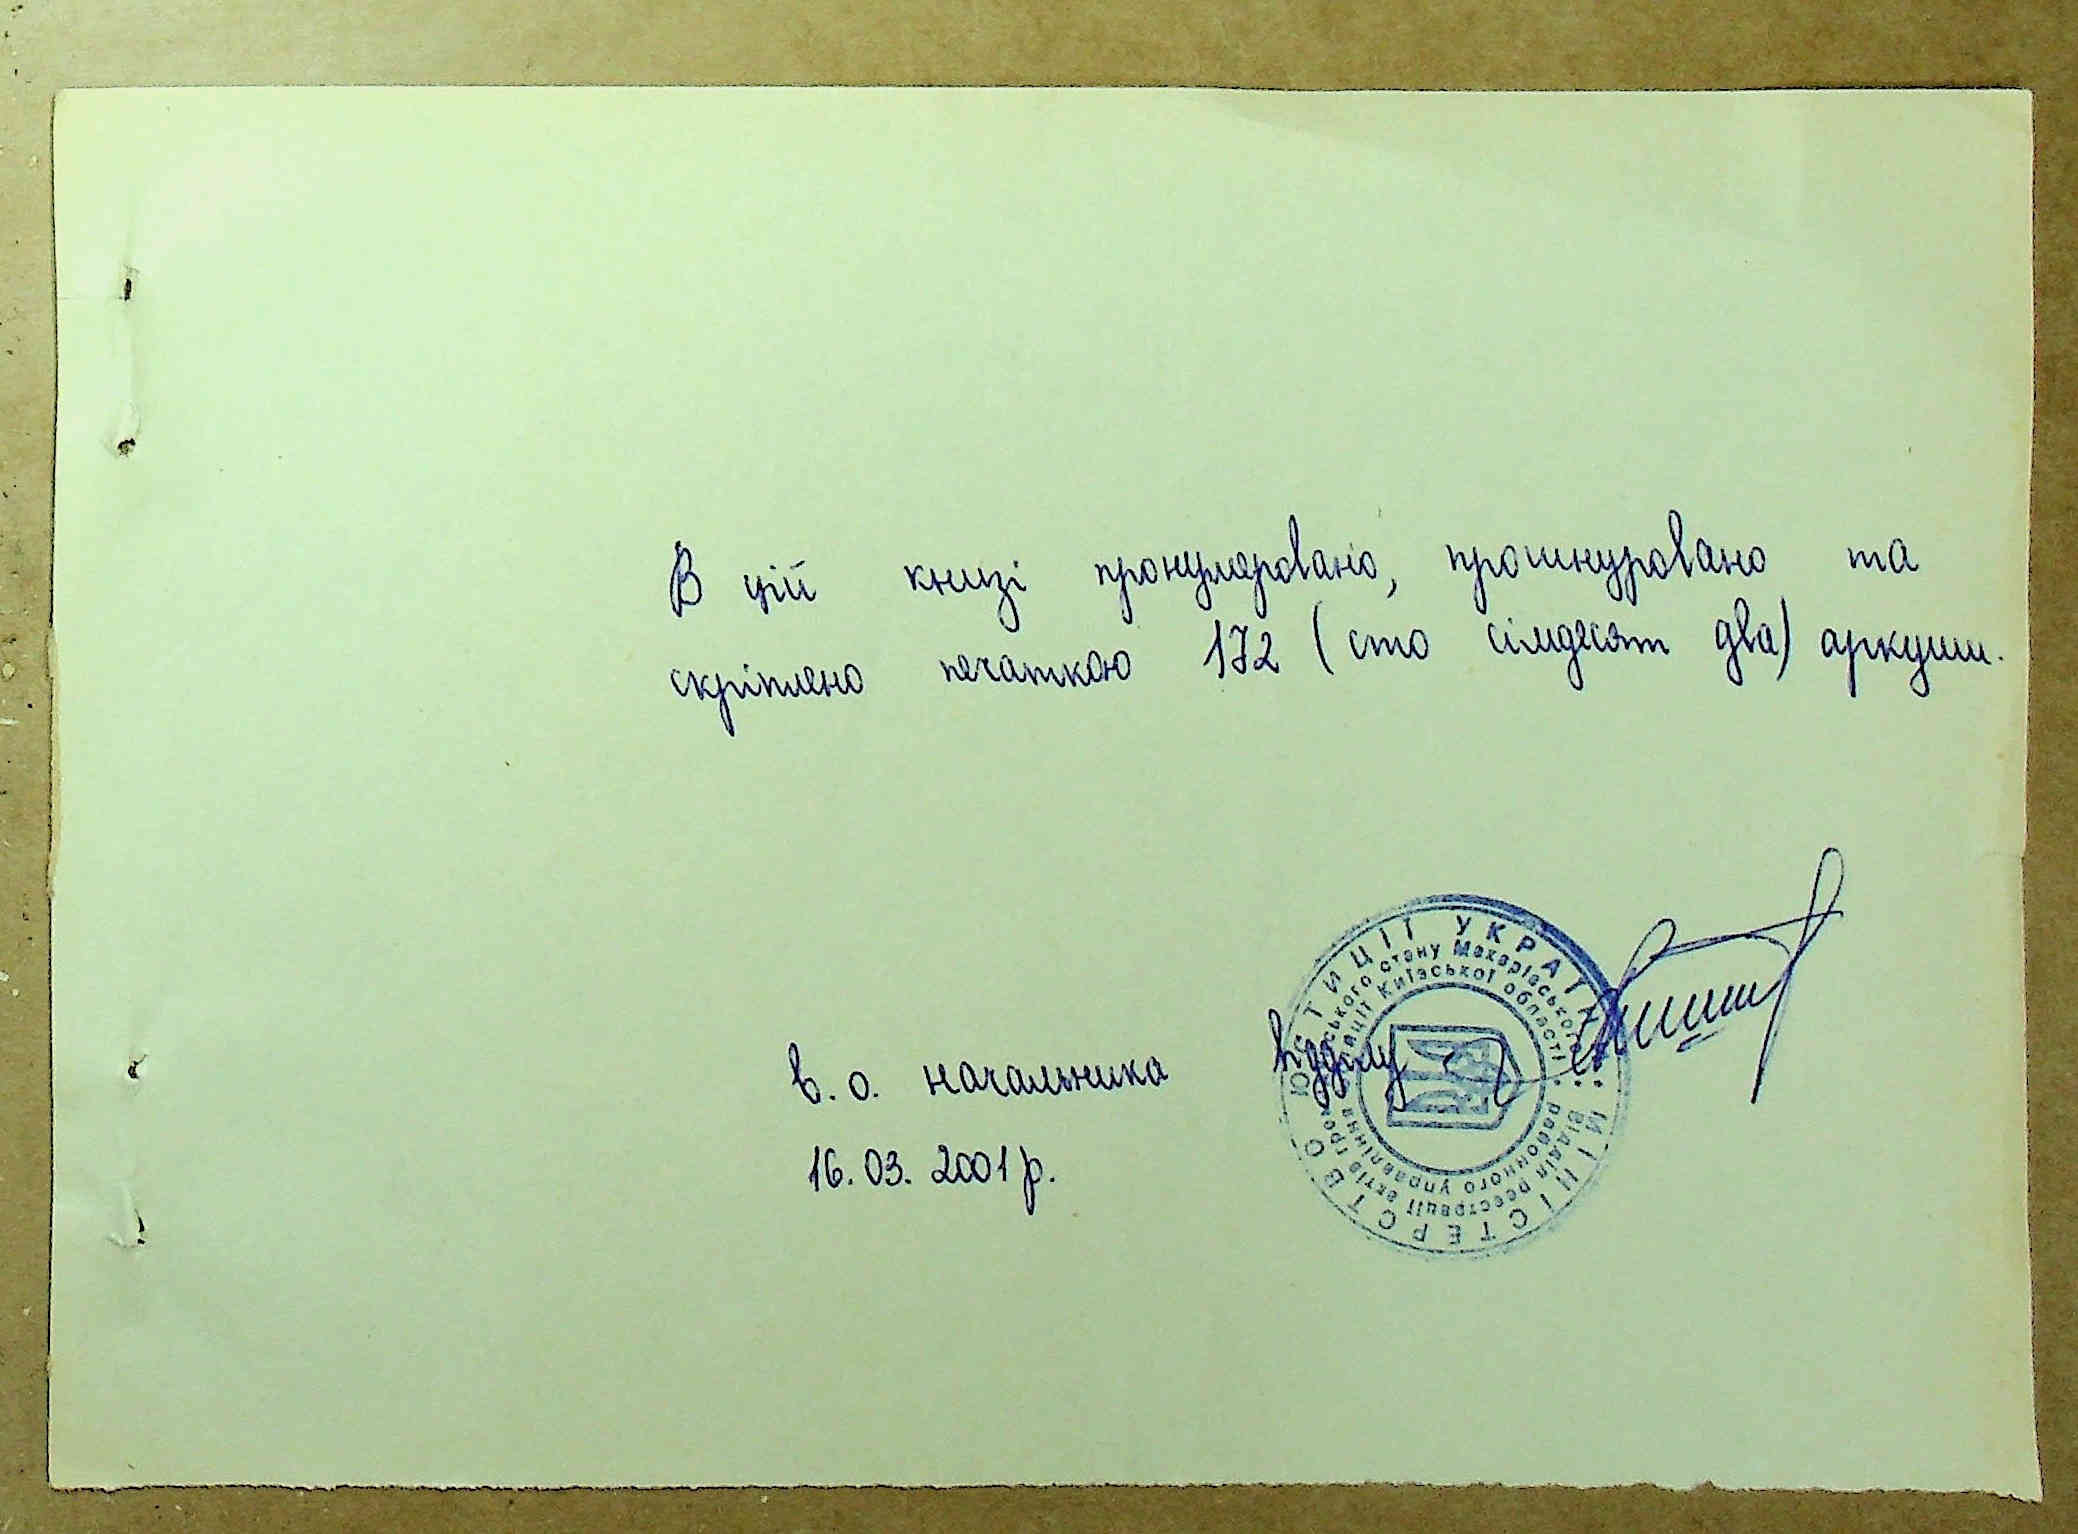 В цій книзі пронумеровано, прошнуровано та
скріплено печаткою 172 (сто сімдесят два) аркуши.
в. о. начальника відділу
16.03.2001р.
МІНІСТЕРСТВО ЮСТИЦІЇ УКРАЇНИ
Відділ реєстрації актів громадського стану Макарівського
районного управління юстиції Київської області